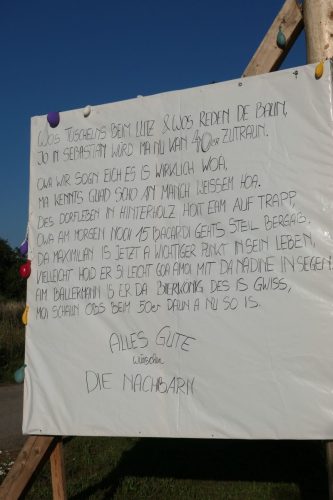 WOS TUSCHELNS BEIM LUTZ & WOS REDEN DE BAUN,
JO IN SEBASTIAN WÜRD MA NU KAN 40er ZUTRAUN.
OWA WIR SOGN EICH ES IS WIRKLICH WOA,
MA KENNTS GLAD SCHO AN MANCH WEISSEM HOA.
DES DORFLEBEN IN HINTERHOLZ HOIT EAM AUF TRAPP,
OWA AM MORGEN NOCH 15 BACARDI GEHTS STEIL BERGAB.
DA MAXIMILIAN IS JETZT A WICHTIGER PUNKT IN SEIN LEBEN,
VIELLEICHT HOD ER SI LEICHT GOA AMOI MIT DA NADINE IN SEGEN
AM BALLERMANN IS ER DA BIERKÖNIG, DES IS GWISS,
MOI SCHAUN OBS BEIM 50er DAUN A NU SO IS.
ALLES GUTE
wünschen
DIE NACHBARN